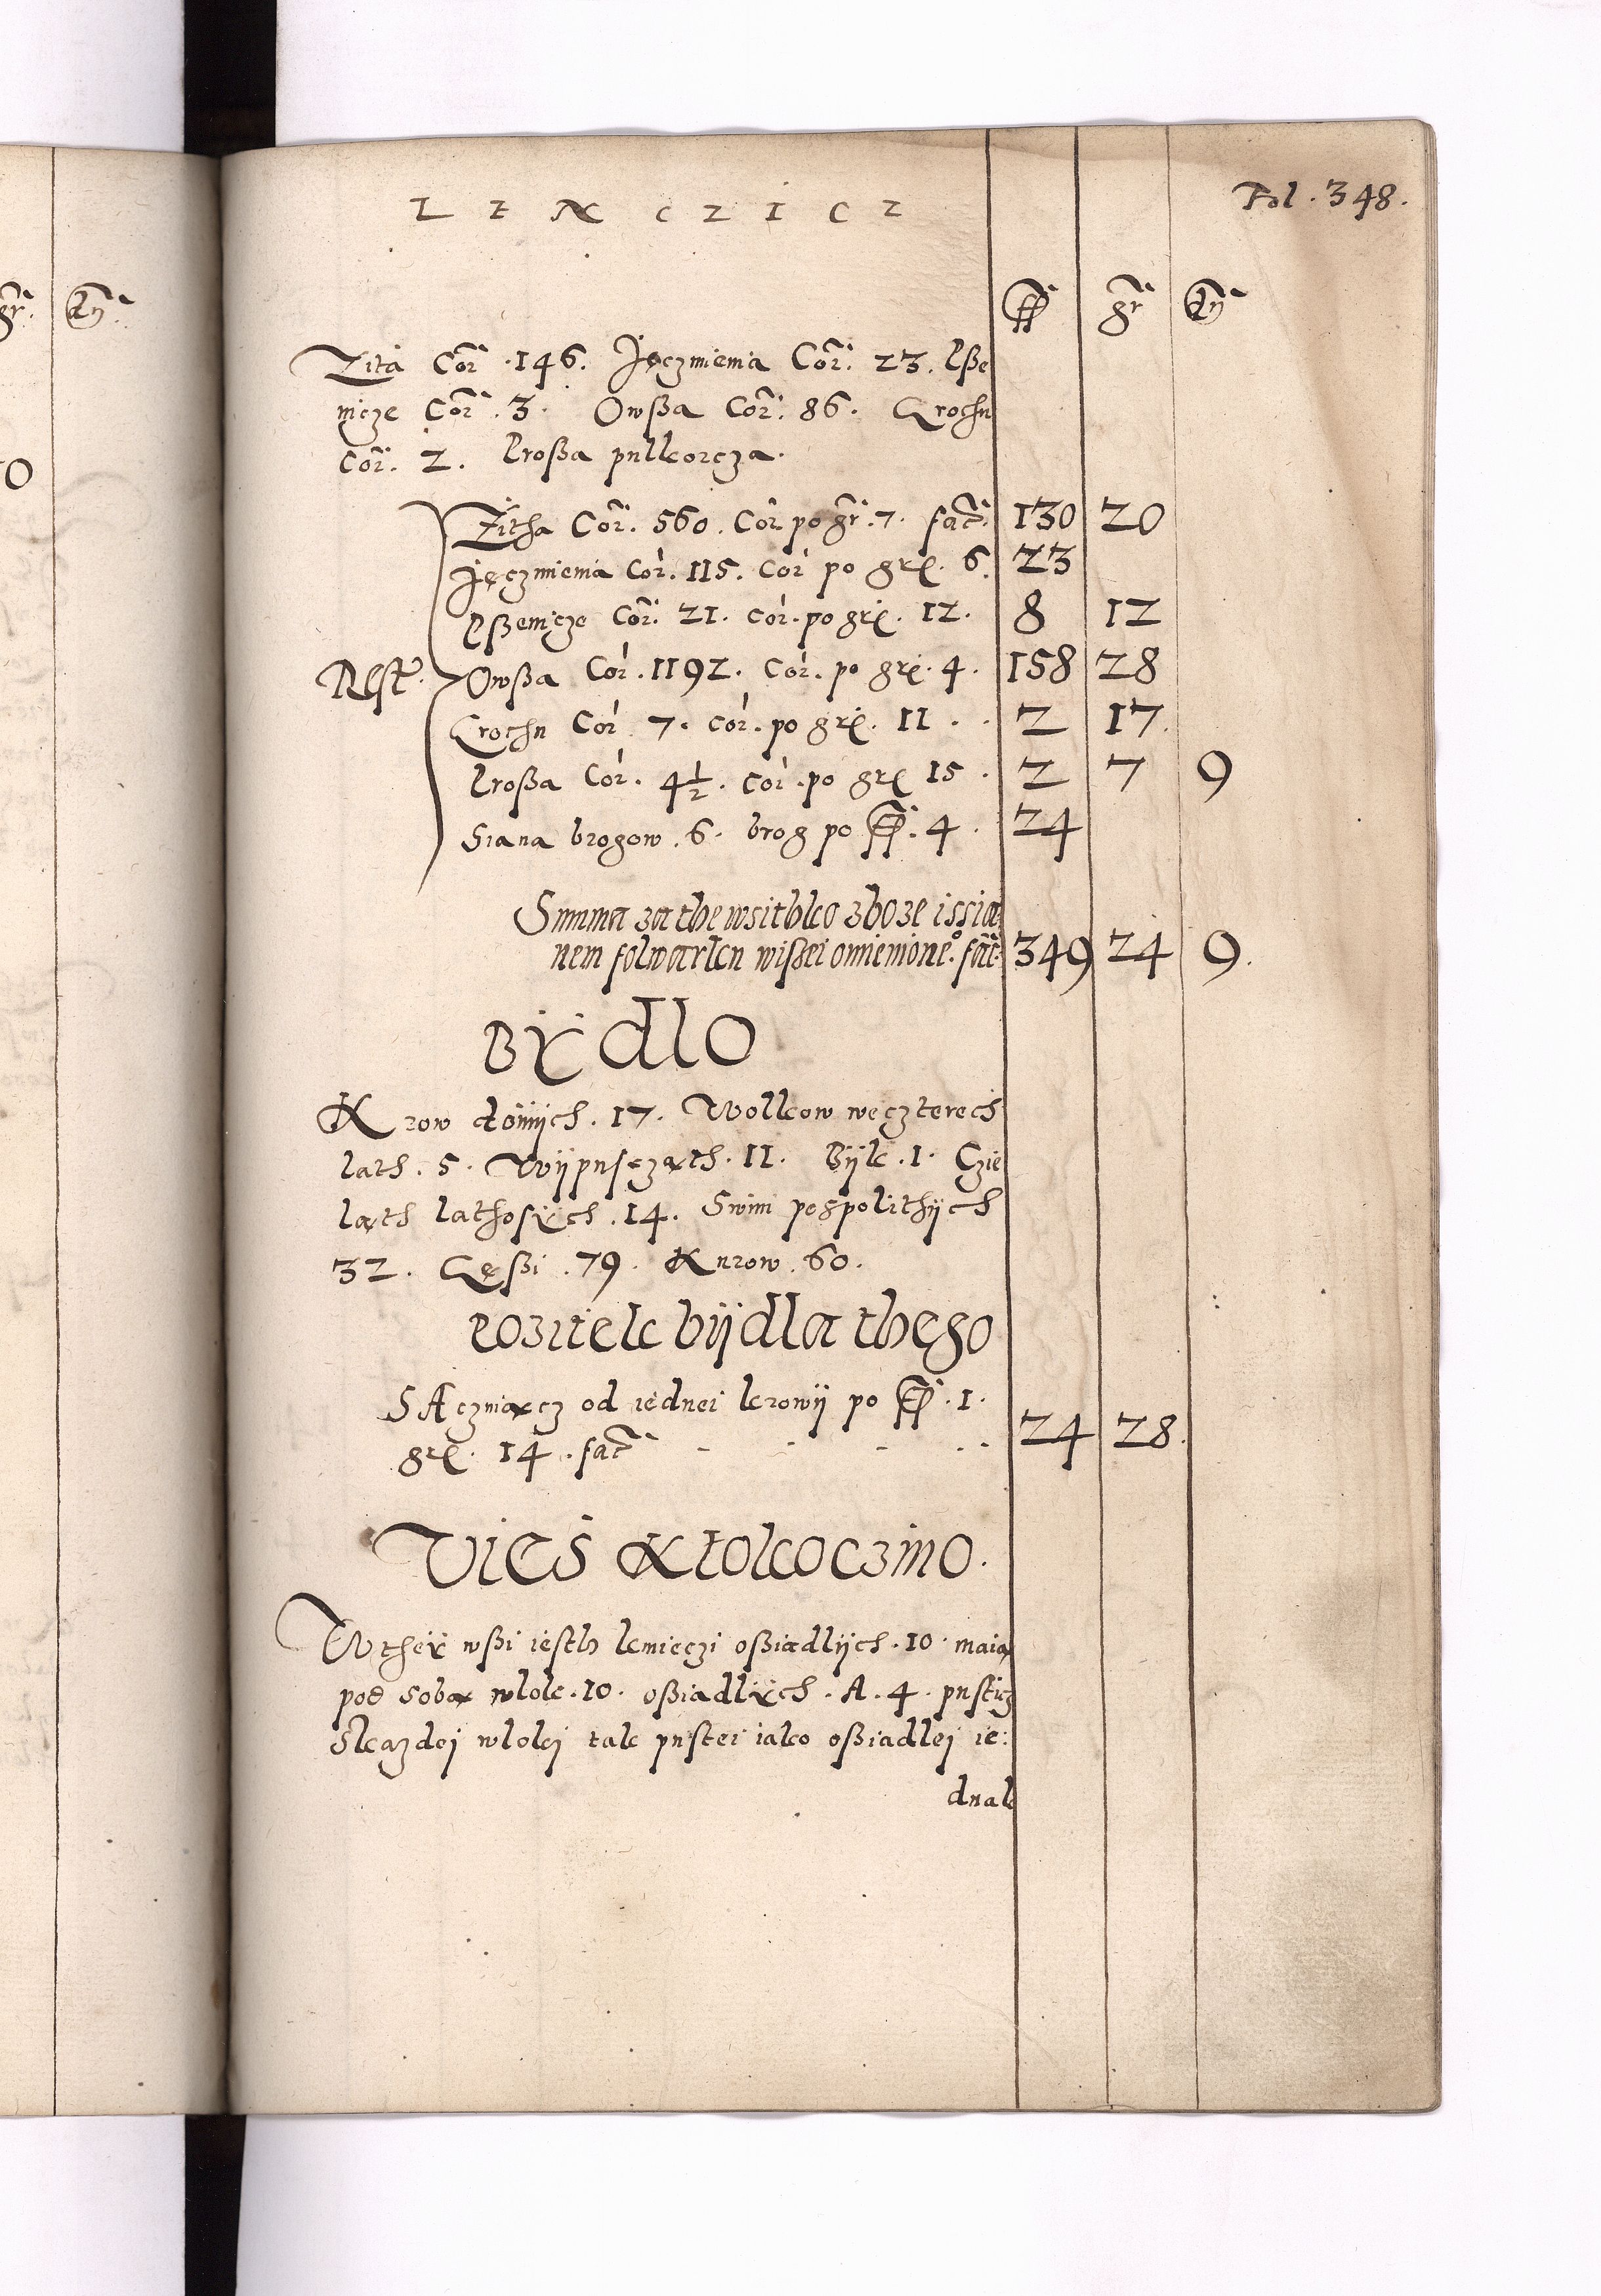 LENCZICZ
Fol. 348.
ff gr dn
gr. dn
Zita Cor. 146. Jęczmienia Cor. 23. Psze
nicze Cor. 3. Owßa Cor. 86. Grochu
Cor. 2. Proßa pulkorcza.
0
Zitha Cor. 560. Cor po gr. 7. fact. 130 20
Jęczmienia Cor. 115. Cor po grl. 6. 23
Pßenicze Cor. 21. Cor. po grl. 12. 8 12
Rest. Owßa Cor. 1192. Cor. po grl. 4. 158 28
Grochu Cor 7. Cor. po grl. 11 . . 2 17.
Proßa Cor. 4½. Cor. po grl 15 . 2 7 9
Siana brogow. 6. brog po ff. 4 . 24
Summa za the wsithko zboze issia
nem folwarku wißei omienione°. fact. 349 24 9.
BYdlO
Krow doinijch. 17. Wolkow we czterech
lath. 5. Wijpuscząth. 11. Bijk. 1. Czie
ląth lathosÿch. 14. Swini pospolithijch
32. Gęßi. 79. Kurow. 60.
Pozitek bijdla thego
SAcziuącz od iednei krowij po ff. 1.
grl. 14. fact - - - . . 24 28.
Vies Kłokoczino.
W theÿ wßi iesth kmieczi oßiadlijch. 10. maią
pod sobą wlok. 10. oßiadlÿch. A. 4. pustich
Skazdej wlokj tak pustei iako oßiadlej ie:
dnak